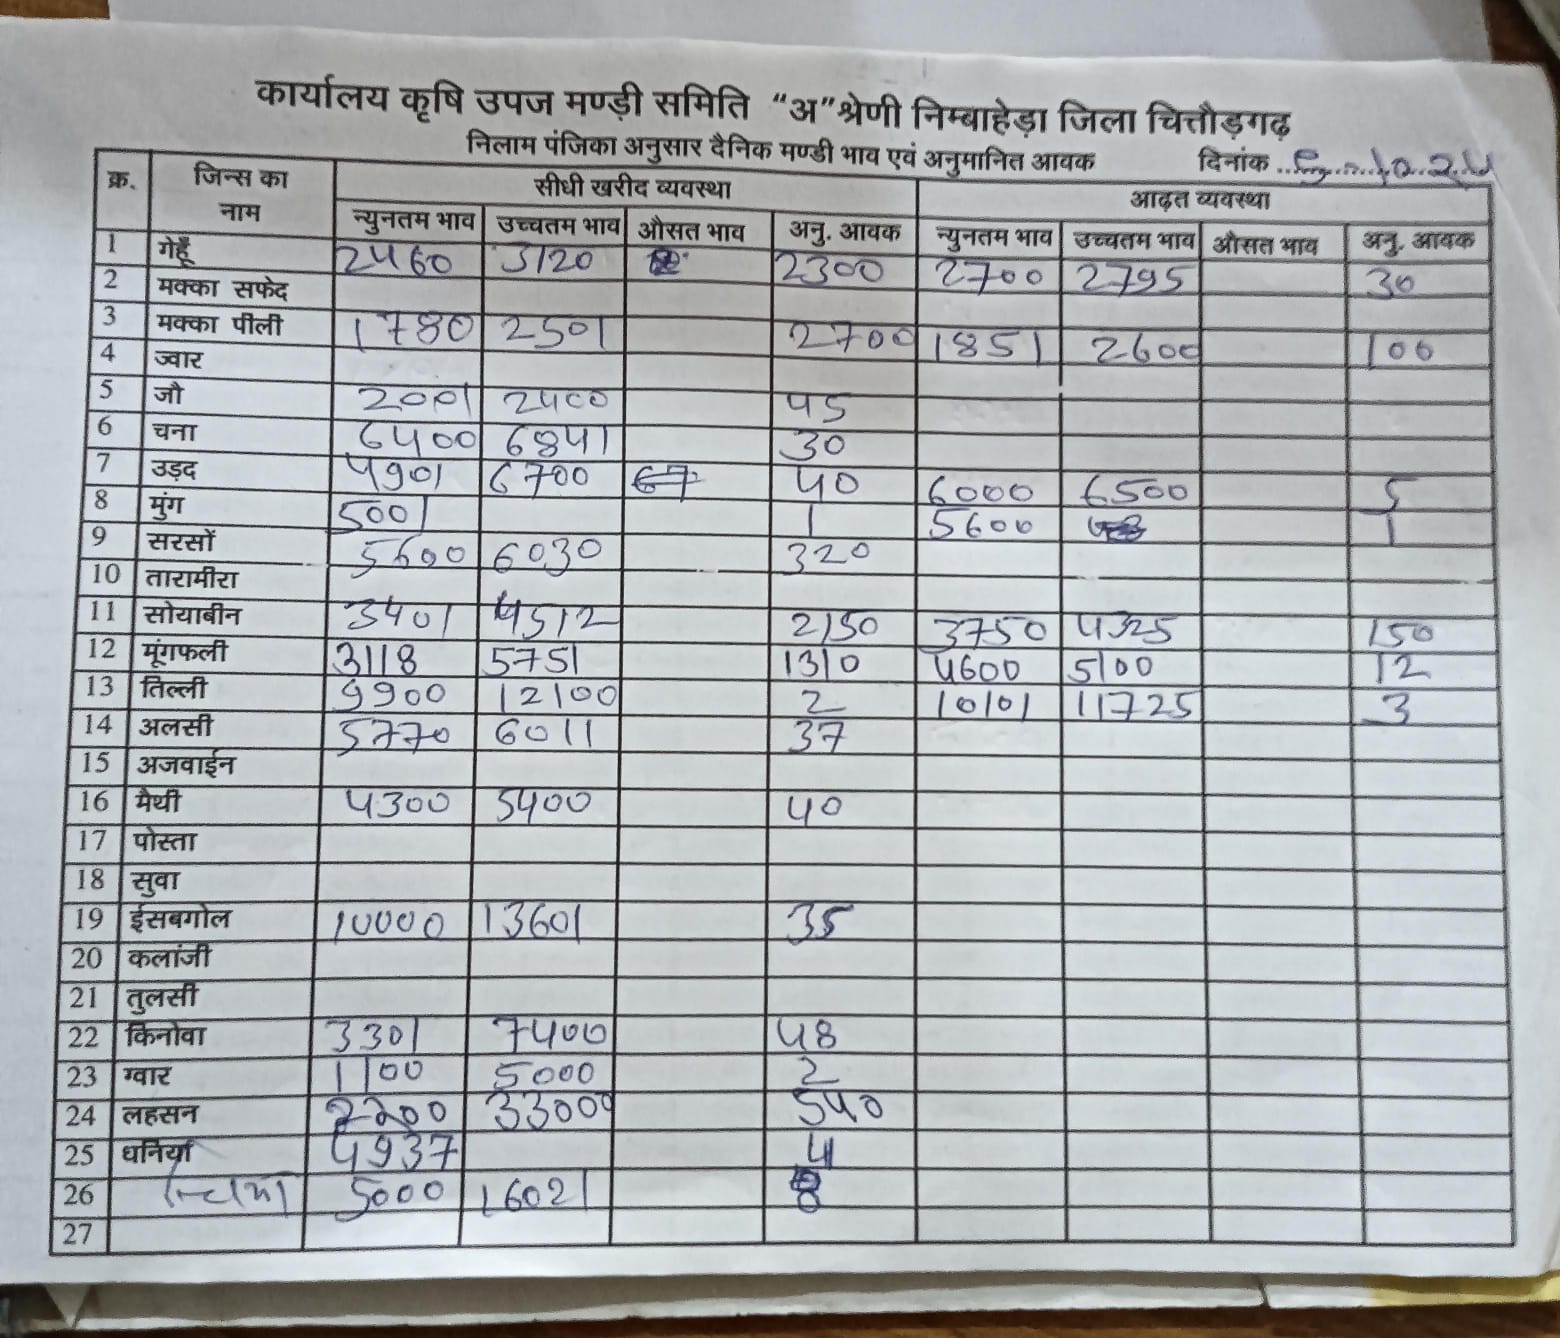 कार्यालय कृषि उपज मण्ड़ी समिति “अ”श्रेणी निम्बाहेड़ा जिला चित्तौड़गढ़
निलाम पंजिका अनुसार दैनिक मण्डी भाव एवं अनुमानित आवक दिनांक
क्र. जिन्स का नाम सीधी खरीद व्यवस्था आढ़त व्यवस्था
न्युनतम भाव उच्चतम भाव औसत भाव अनु. आवक न्युनतम भाव उच्चतम भाव औसत भाव अनु. आवक
1 गेहूँ 2460 3120 2300 2700 2795 30
2 मक्का सफेद
3 मक्का पीली 1780 2501 2700 1851 2600 100
4 ज्वार
5 जौ 2001 2400 45
6 चना 6400 6841 30
7 उड़द 4901 6700 67 40 6000 6500 5
8 मुंग 5001 1 5600 1
9 सरसों 5600 6030 320
10 तारामीरा
11 सोयाबीन 3401 4512 2150 3750 4325 150
12 मूंगफली 3118 5751 1310 4600 5100 12
13 तिल्ली 9900 12100 2 10101 11725 3
14 अलसी 5770 6011 37
15 अजवाईन
16 मैथी 4300 5400 40
17 पोस्ता
18 सुवा
19 ईसबगोल 10000 13601 35
20 कलांजी
21 तुलसी
22 किनोवा 3301 7400 48
23 ग्वार 1100 5000 2
24 लहसन 2200 33000 540
25 धनियां 4937 4
26 5000 16021 8
27